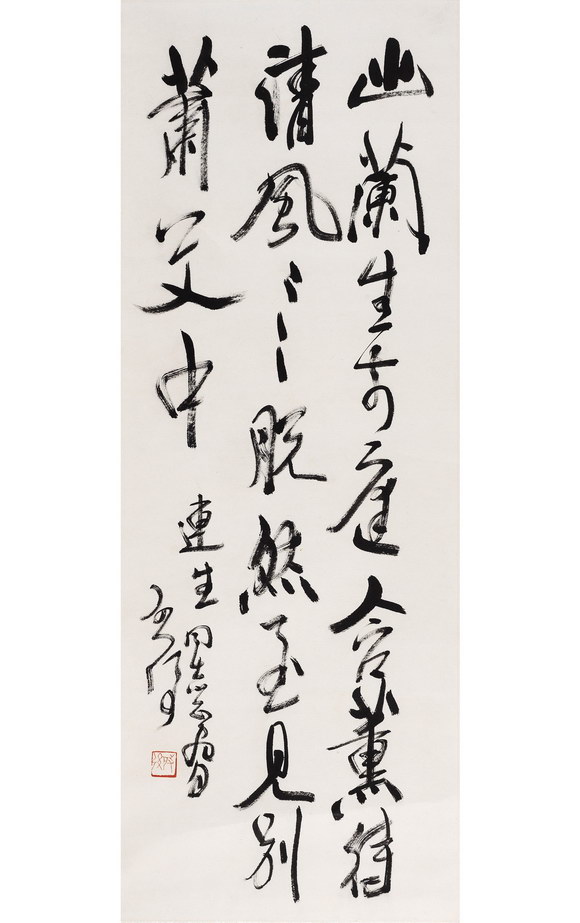 幽蘭生前庭含薰待
清風〻〻脱然至見別
蕭艾中
連生同志